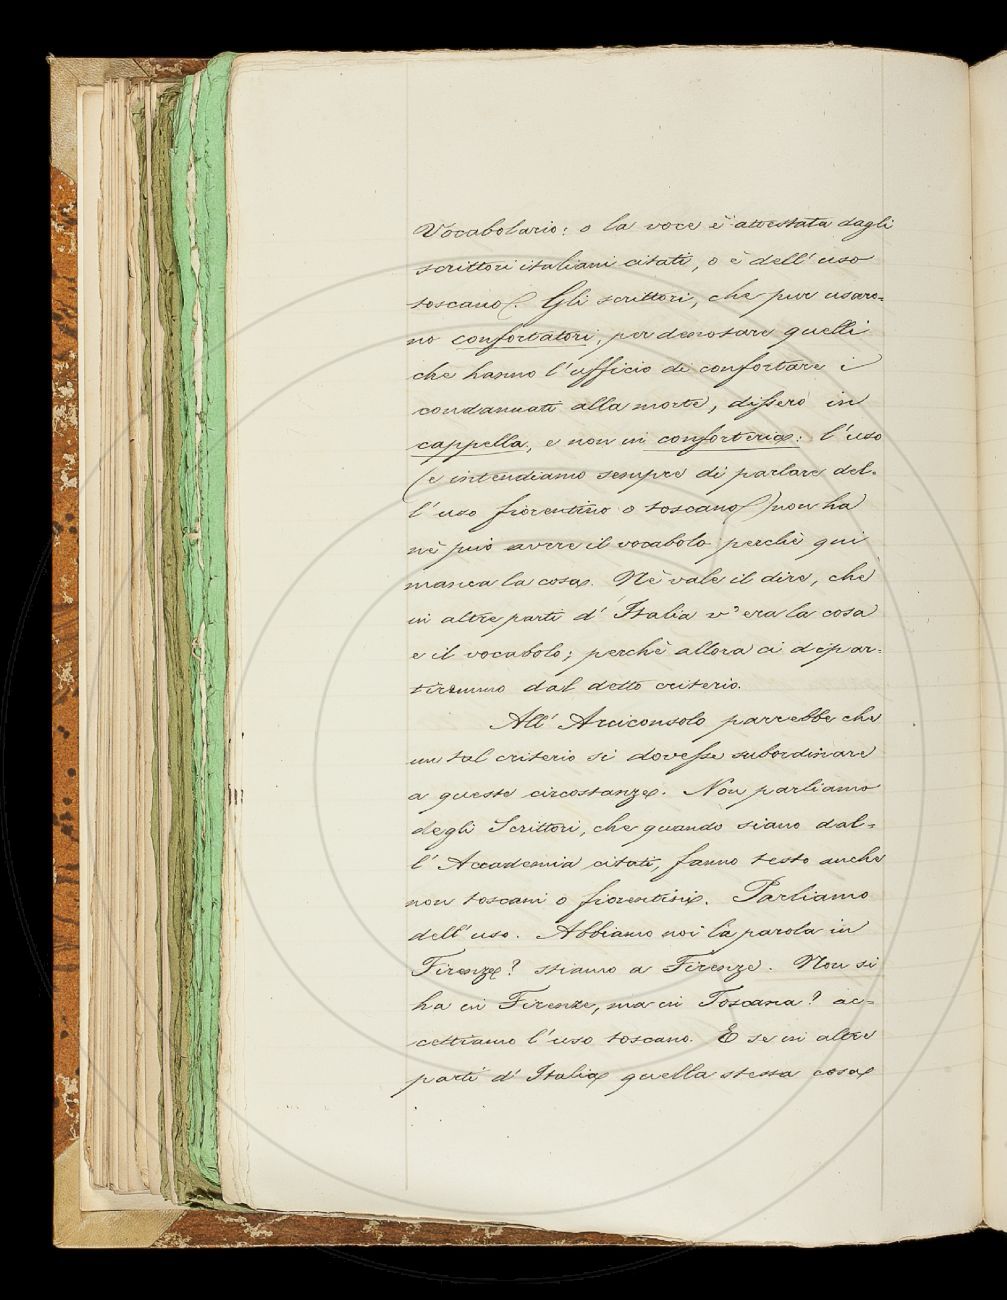 Vocabolario: o la voce è attestata dagli
scrittori italiani citati, o è dell'uso
toscano. Gli scrittori, che pur usaro=
no confortatori, per denotare quelli
che hanno l'ufficio di confortare i
condannati alla morte, dissero in
cappella, e non in conforteria: l'uso
(e intendiamo sempre di parlare del=
l'uso fiorentino o toscano) non ha
nè può avere il vocabolo perchè qui
manca la cosa. Nè vale il dire, che
in altre parti d'Italia v'era la cosa
e il vocabolo; perchè allora ci dipar=
tiremmo dal detto criterio.
All'Arciconsolo parrebbe che
un tal criterio si dovesse subordinare
a queste circostanze. Non parliamo
degli Scrittori, che quando siano dal=
l'Accademia citati, fanno testo anche
non toscani o fiorentini. Parliamo
dell'uso. Abbiamo noi la parola in
Firenze? stiamo a Firenze. Non si
ha in Firenze, ma in Toscana? ac=
cettiamo l'uso toscano. E se in altre
parti d'Italia quella stessa cosa